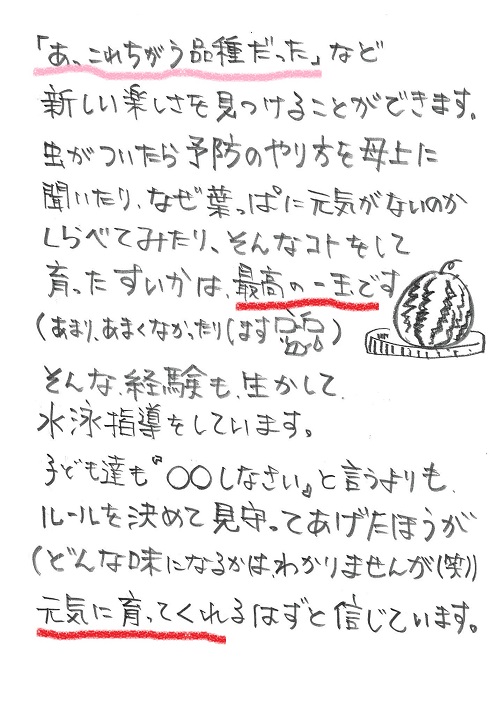 「あっこれちがう品種だった」など
新しい楽しさを見つけることができます。
虫がついたら予防のやり方を母上に
聞いたり、なぜ葉っぱに元気がないのか
しらべてみたり、そんなコトをして
育ったすいかは、最高の一玉です
(あまり、あまくなかったりします)
そんな、経験も、生かして、
水泳指導をしています。
子ども達も『〇〇しなさい』と言うよりも、
ルールを決めて見守ってあげたほうが
(どんな味になるかは、わかりませんが(笑))
元気に育ってくれるはずと信じています。